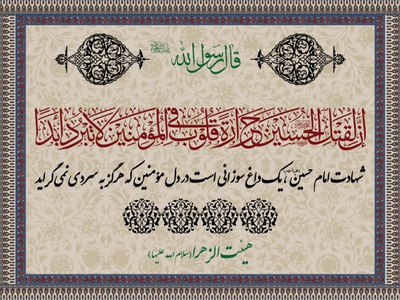 قال رسول الله ﷺ
ان لقتل الحسین حرارة فی قلوب المؤمنین لا تبرد ابدا
شهادت امام حسین (علیه السلام) یک داغ سوزانی است در دل مؤمنین که هرگز به سردی نمی گراید
هیئت الزهرا (سلام الله علیها)